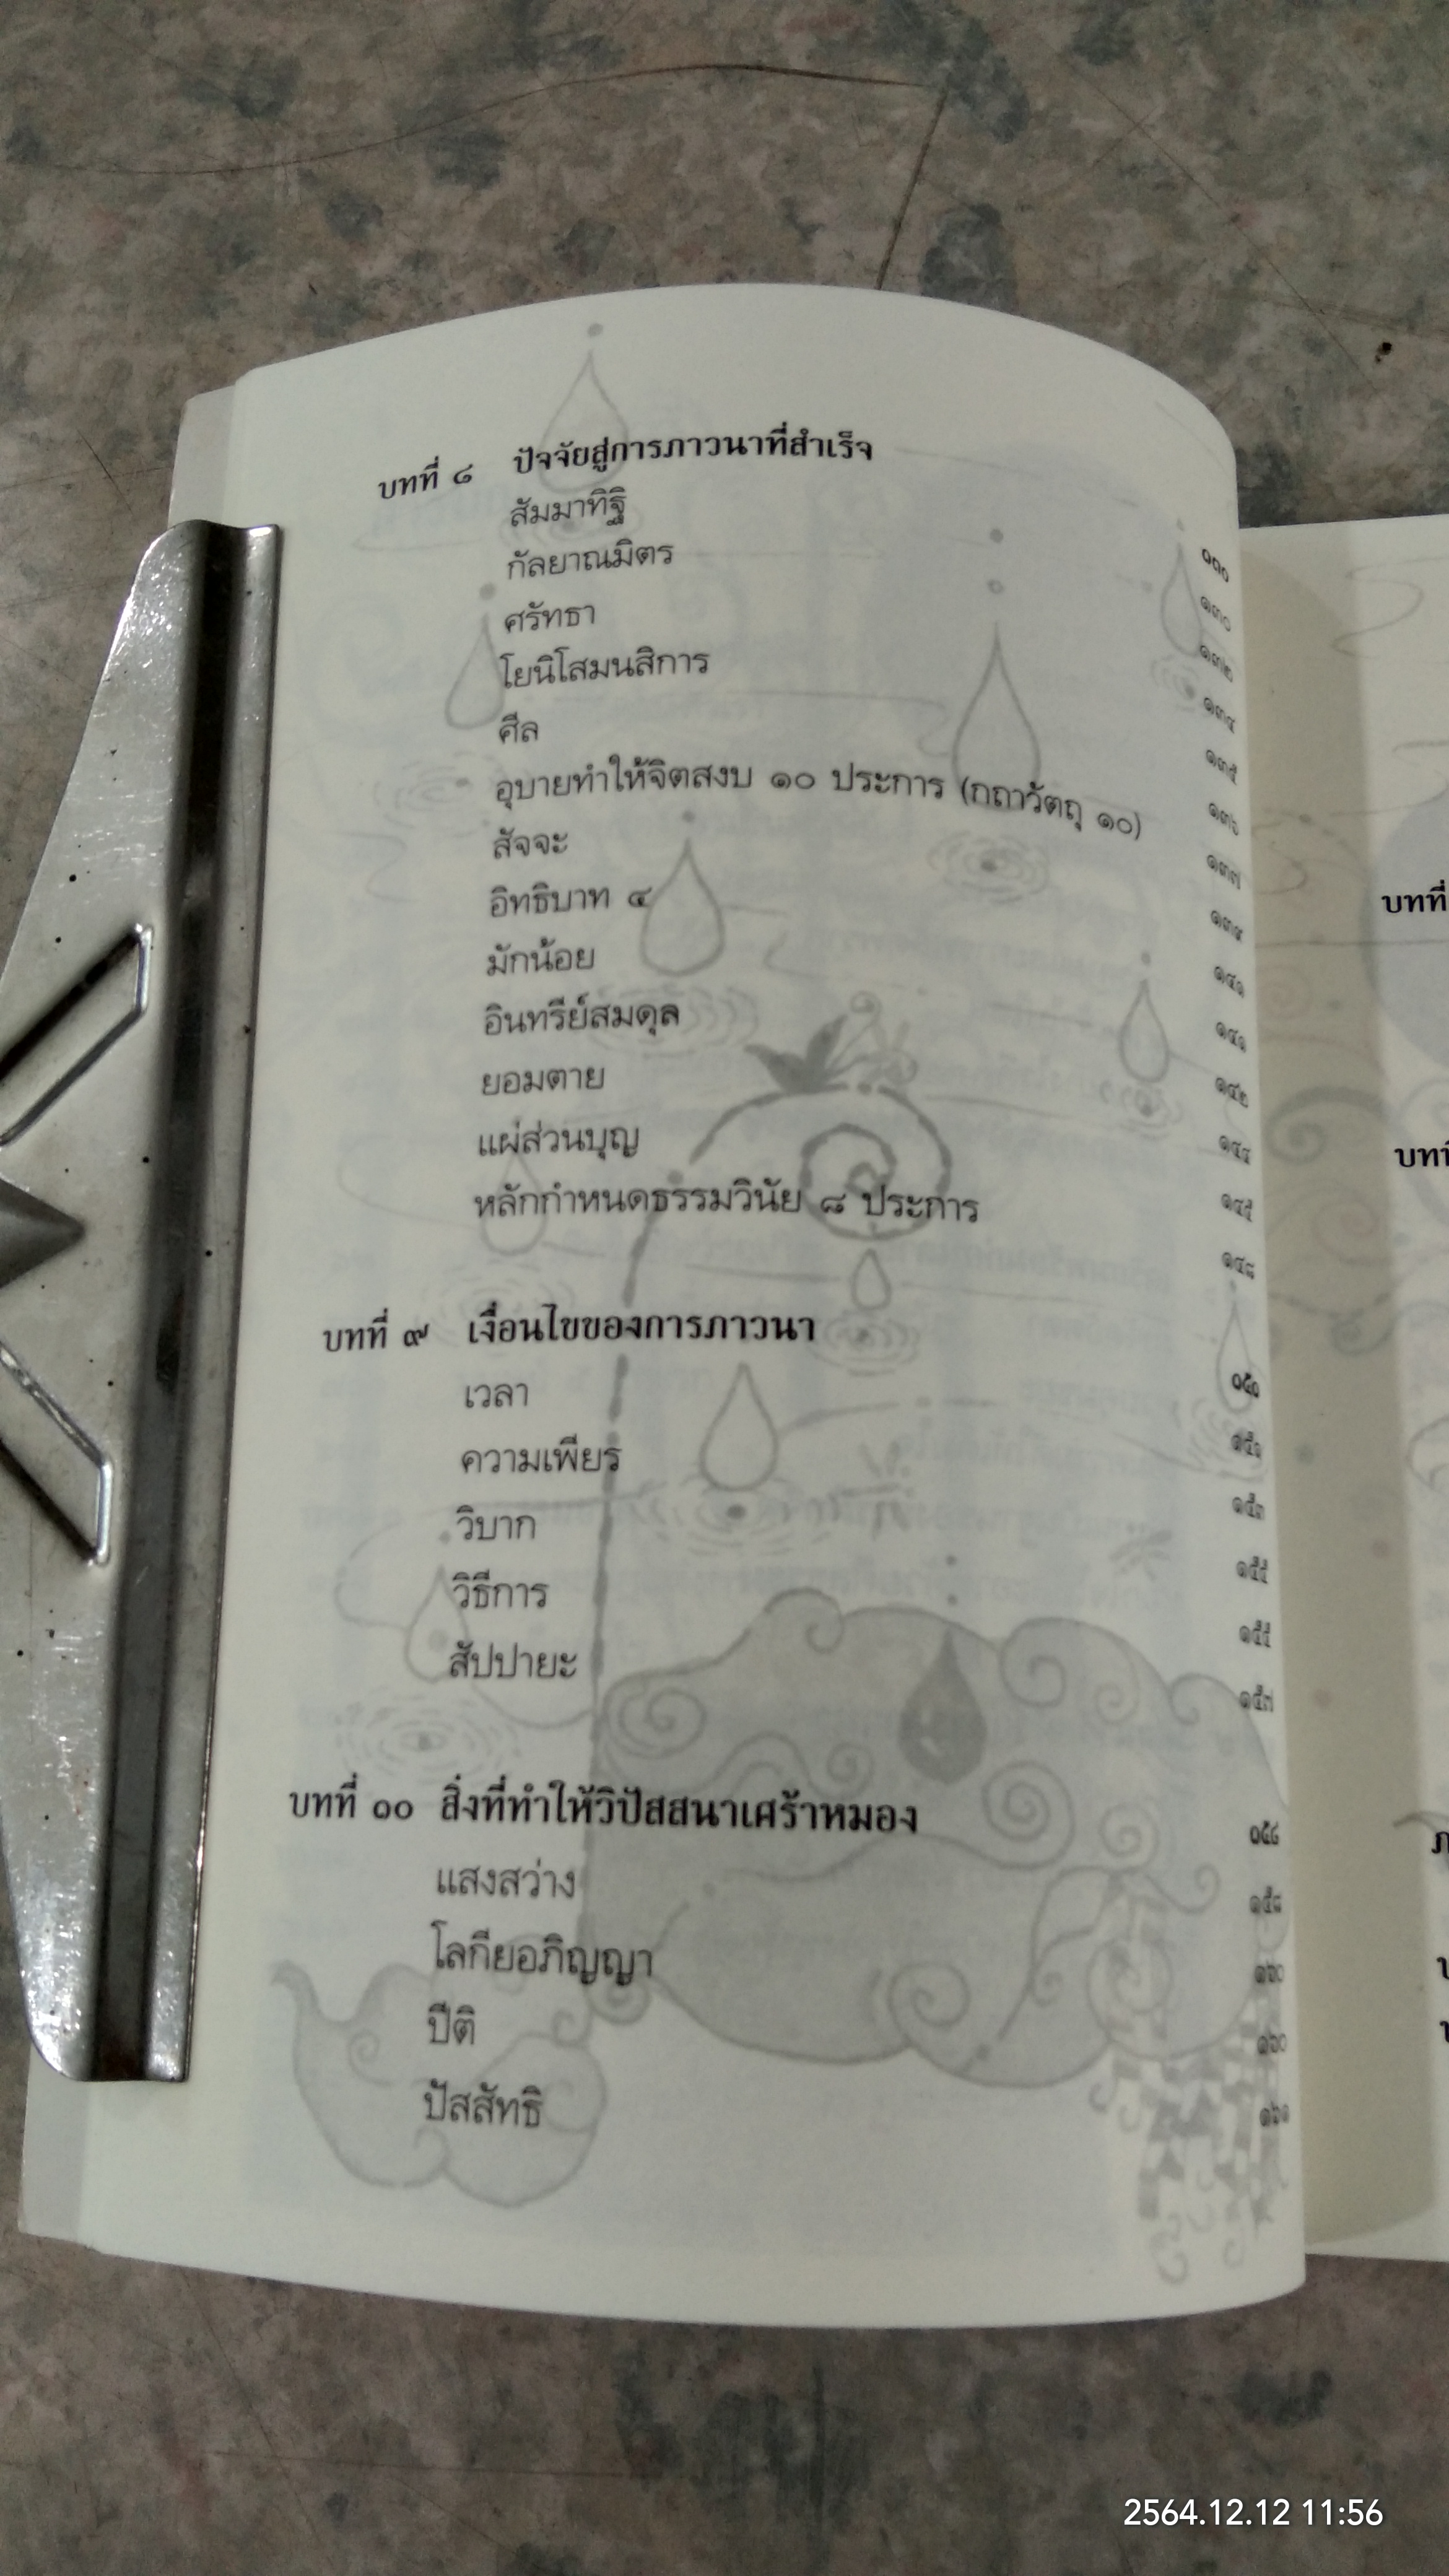 บทที่ ๘ ปัจจัยสู่การภาวนาที่สำเร็จ ๑๓๐
สัมมาทิฐิ ๑๓๐
กัลยาณมิตร ๑๓๒
ศรัทธา ๑๓๔
โยนิโสมนสิการ ๑๓๕
ศีล ๑๓๖
อุบายทำให้จิตสงบ ๑๐ ประการ (กถาวัตถุ ๑๐) ๑๓๗
สัจจะ ๑๓๙
อิทธิบาท ๔ ๑๔๑
มักน้อย ๑๔๑
อินทรีย์สมดุล ๑๔๒
ยอมตาย ๑๔๔
แผ่ส่วนบุญ ๑๔๕
หลักกำหนดธรรมวินัย ๘ ประการ ๑๔๘
บทที่ ๙ เงื่อนไขของการภาวนา ๑๕๐
เวลา ๑๕๑
ความเพียร ๑๕๓
วิบาก ๑๕๕
วิธีการ ๑๕๕
สัปปายะ ๑๕๗
บทที่ ๑๐ สิ่งที่ทำให้วิปัสสนาเศร้าหมอง ๑๕๘
แสงสว่าง ๑๕๘
โลกียอภิญญา ๑๖๐
ปีติ ๑๖๐
ปัสสัทธิ ๑๖๑
บทที่
2564.12.12 11:56